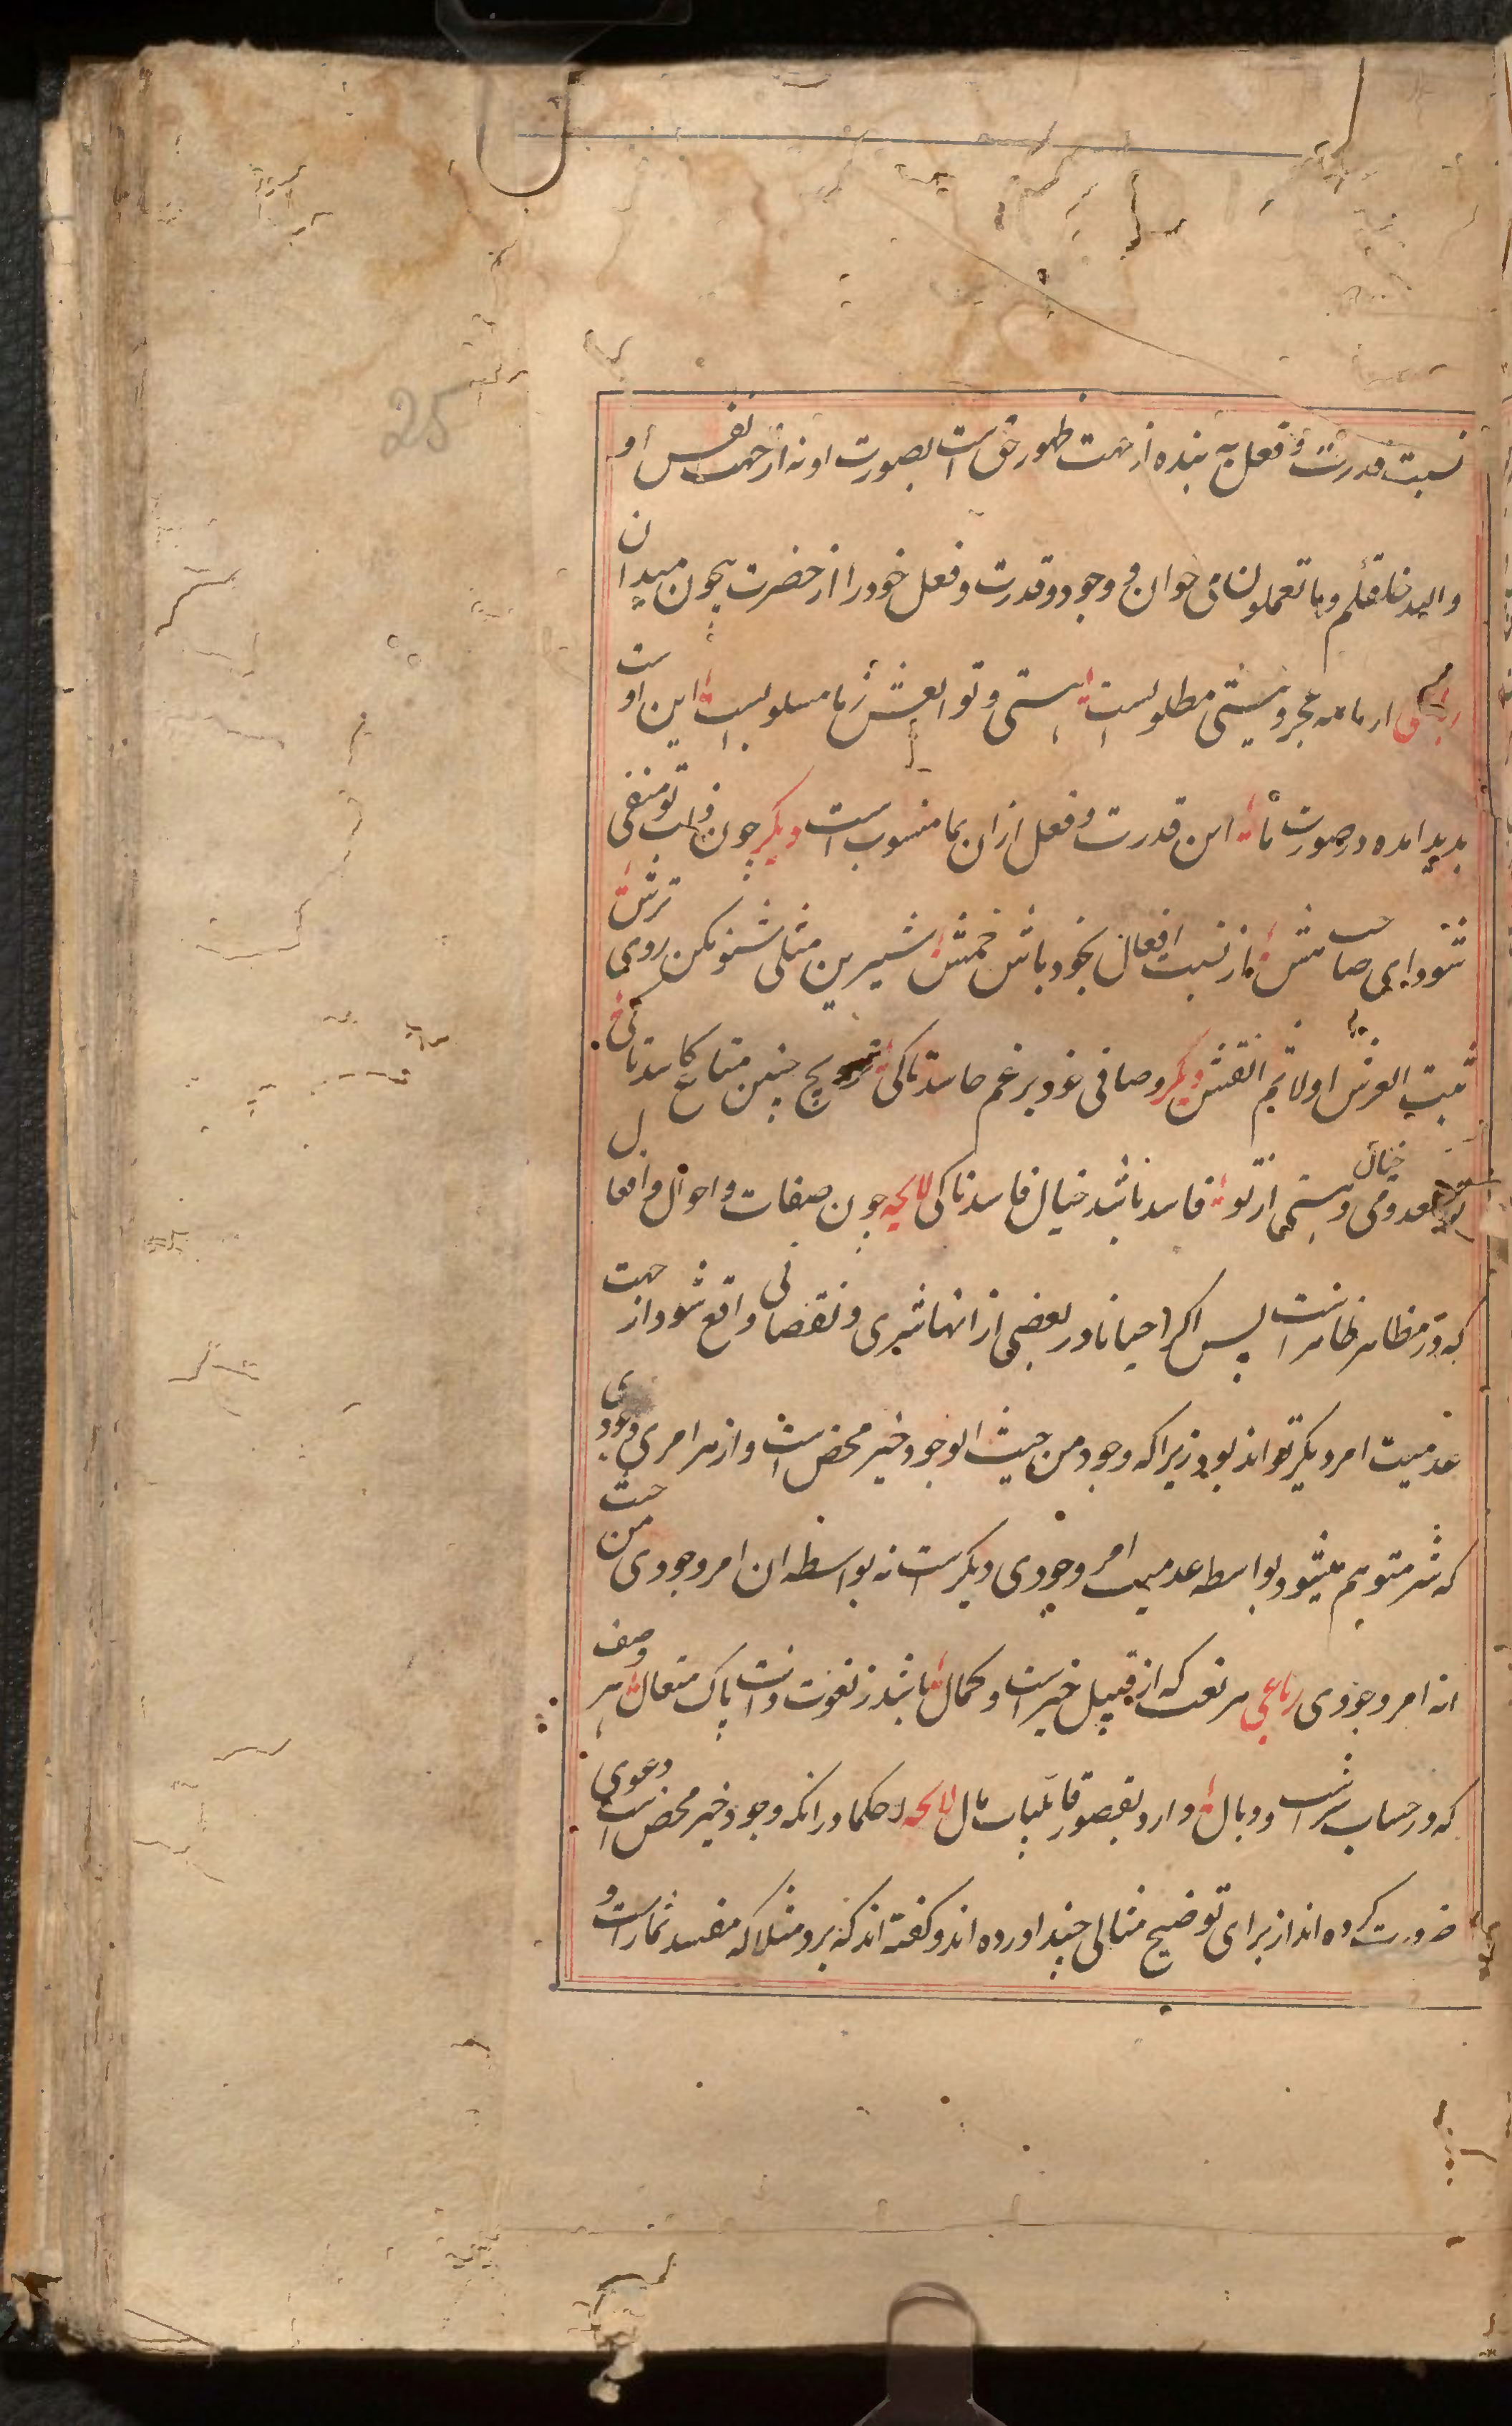 25
نسبت قدرت و فعل به بنده از جهت ظهور حق است بصورت او نه از جهت نفس او
والله خلقکم وما تعملون می خوان و وجود و قدرت و فعل خود را از حضرت بیچون میدان
رباعی از ما همه عجز و نیستی مطلوبست هستی و توابعش ز ما مسلوبست این اوست
بدید امده در صورت ما این قدرت و فعل ازان بما منسوب است دیکر چون ذات تو منفی
شود ای صاحب هش از نسبت افعال بخود باش خمش شیرین مثلی شنو مکن روی ترش
ثبت العرش اولا ثم انقش دیکر وصافی خود برغم حاسد تا کی ترویج چنین متاع کاسد تا کی
تو معدومی خیال هستی از تو فاسد باشد خیال فاسد تا کی لایحه چون صفات و احوال و افعال
که در مظاهر ظاهر است پس اکر احیانا در بعضی از انها شری و نقصانی واقع شود از جهت
عدمیت امر دیکر تواند بود زیرا که وجود من حیث الوجود خیر محض است و از هر امری وجودی
که شر متوهم میشود بواسطه عدمیت امر وجودی دیکرست نه بواسطه ان امر وجودی من حیث
انه امر وجودی رباعی هر نعت که از قبیل خیر است و کمال باشد ز نعوت ذات پاک متعال هر وصف
که در حساب شر است و وبال دارد بقصور قابلیات مال لایحه حکما در انکه وجود خیر محض است دعوی
ضرورت کرده اند از برای توضیح مثالی چند اورده اند و کفته اند که برد مثلا که مفسد ثمار است و